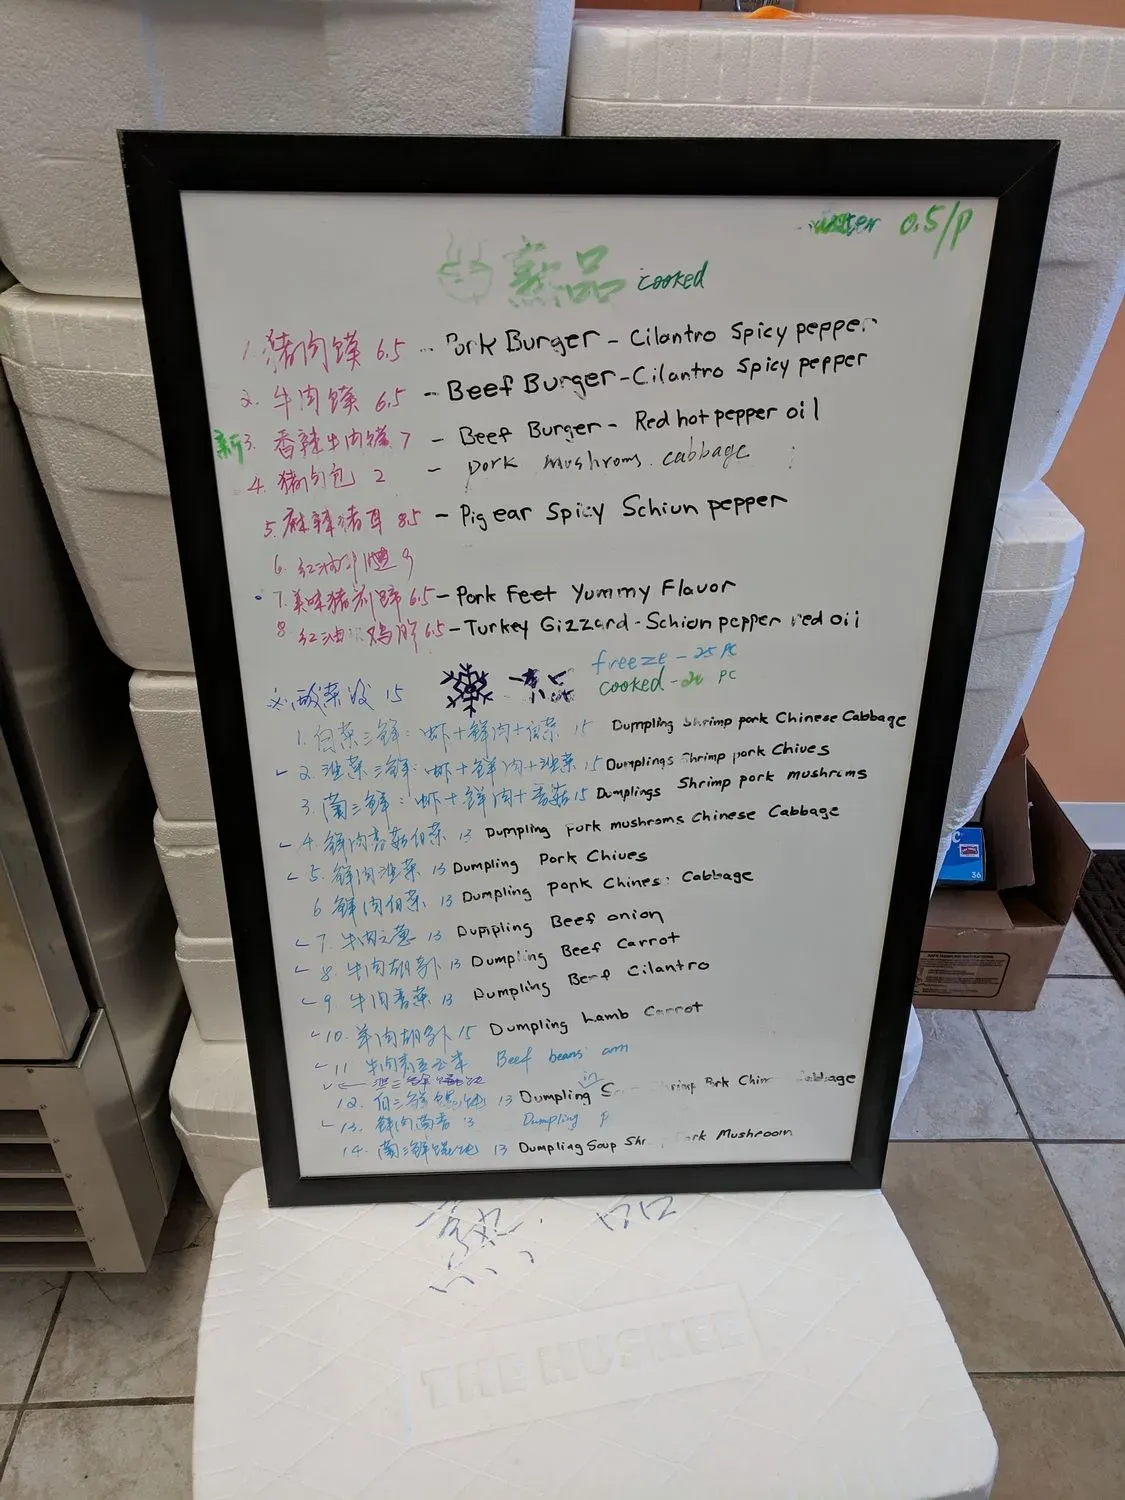 water 0.5/p
熟品 cooked
1. 猪肉馍 6.5 - Pork Burger - Cilantro Spicy pepper
2. 牛肉馍 6.5 - Beef Burger - Cilantro Spicy pepper
新 3. 香辣牛肉馍 7 - Beef Burger - Red hot pepper oil
4. 猪肉包 2 - pork mushroms. cabbage
5. 麻辣猪耳 8.5 - Pig ear Spicy Schiun pepper
6. 红油 9
7. 美味猪蹄 6.5 - Pork Feet Yummy Flavor
8. 红油鸡胗 6.5 - Turkey Gizzard - Schion pepper red oil
freeze - 25 PC
酸菜 15 cooked - 20 PC
1. 白菜三鲜: 虾+鲜肉+白菜 15 Dumpling Shrimp pork Chinese Cabbage
2. 韭菜三鲜: 虾+鲜肉+韭菜 15 Dumplings Shrimp pork Chives
3. 菌三鲜: 虾+鲜肉+香菇 15 Dumplings Shrimp pork mushrums
4. 鲜肉香菇白菜 13 Dumpling Pork mushroms Chinese Cabbage
5. 鲜肉韭菜 13 Dumpling Pork Chives
6 鲜肉白菜 13 Dumpling pork Chines: Cabbage
7. 牛肉大葱 13 Dumpling Beef onion
8. 牛肉胡萝卜 13 Dumpling Beef Carrot
9. 牛肉香菜 13 Dumpling Beef Cilantro
10. 羊肉胡萝卜 15 Dumpling Lamb Carrot
11 牛肉 Beef beans
in
12. 白三鲜馄饨 13 Dumpling Shrimp Pork Cabbage
13. 鲜肉 13 Dumpling P
14. 菌三鲜馄饨 13 Dumpling Soup Pork Mushroom
THE HUSKEE